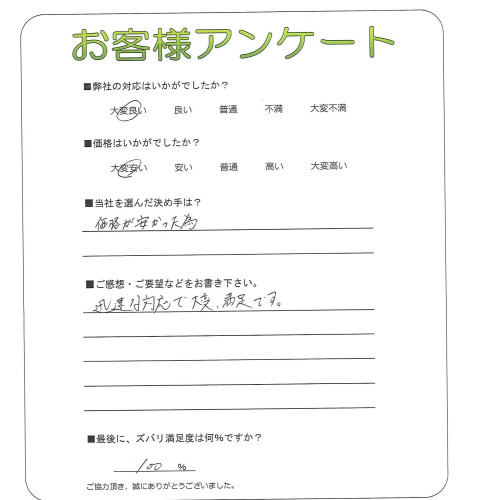 お客様アンケート
■弊社の対応はいかがでしたか？
大変良い 良い 普通 不満 大変不満
■価格はいかがでしたか？
大変安い 安い 普通 高い 大変高い
■当社を選んだ決め手は？
価格が安かった為
■ご感想・ご要望などをお書き下さい。
迅速な対応で大変、満足です。
■最後に、ズバリ満足度は何%ですか？
100 %
ご協力頂き、誠にありがとうございました。